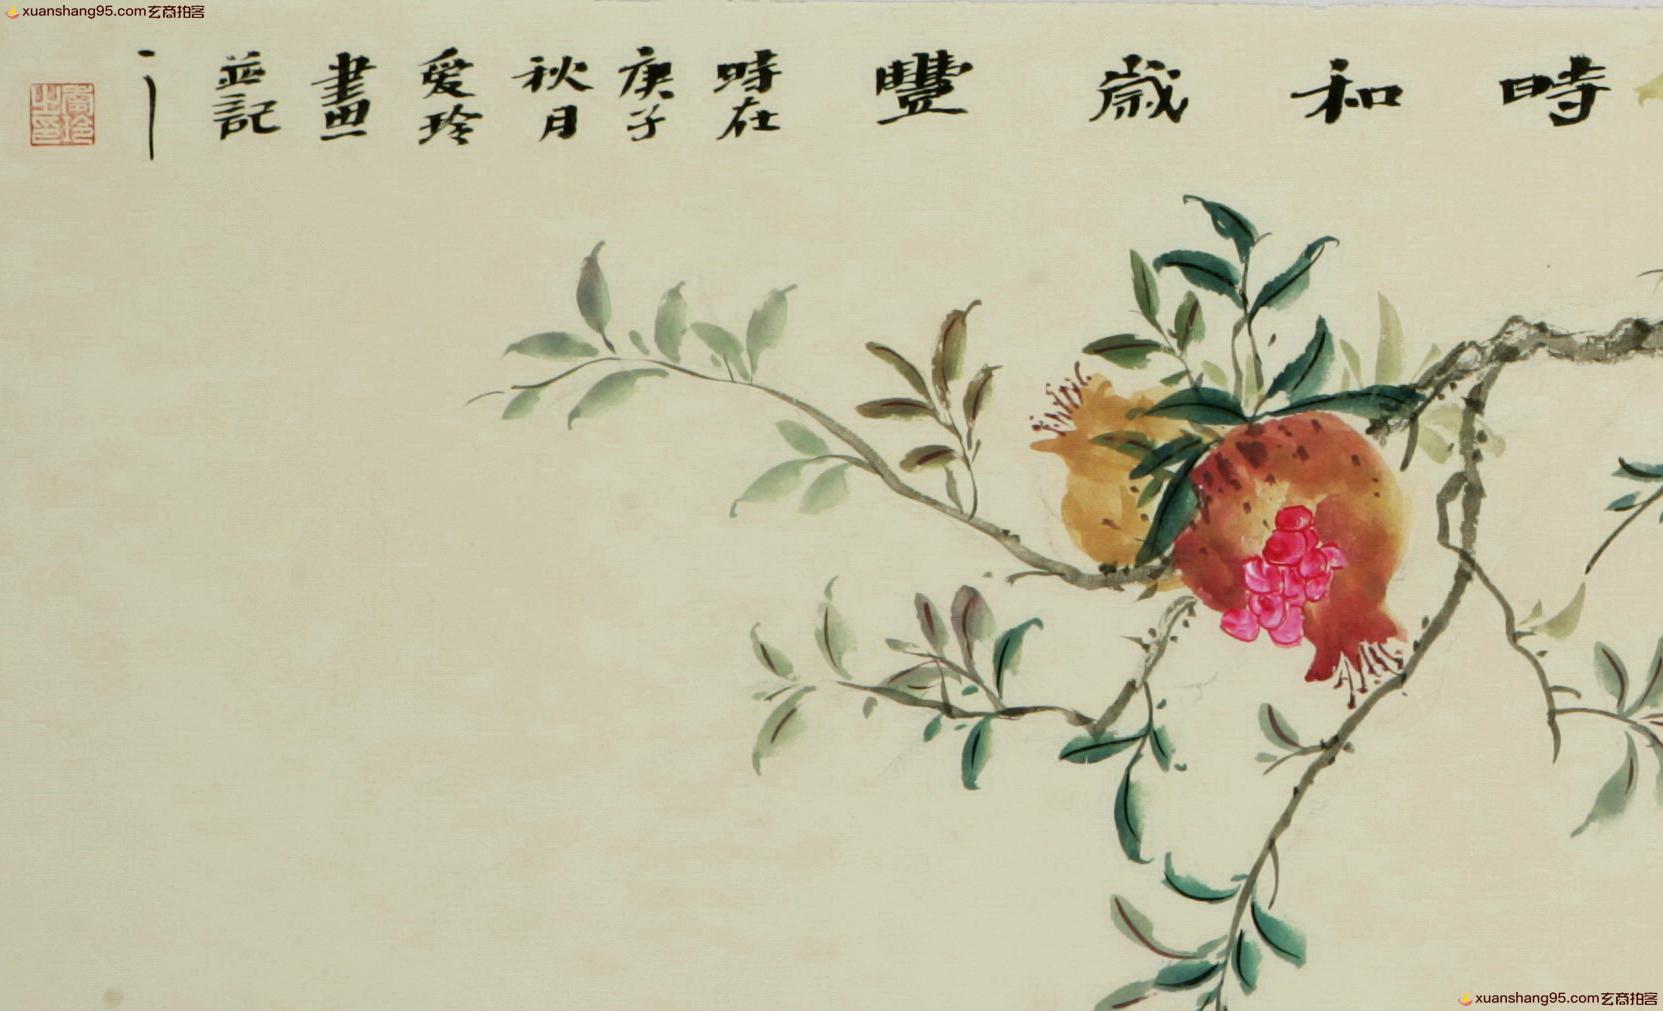 xuanshang95.com玄商拍客
時和歲豐
時在
庚子
秋月
愛玲
畫
並記
xuanshang95.com玄商拍客